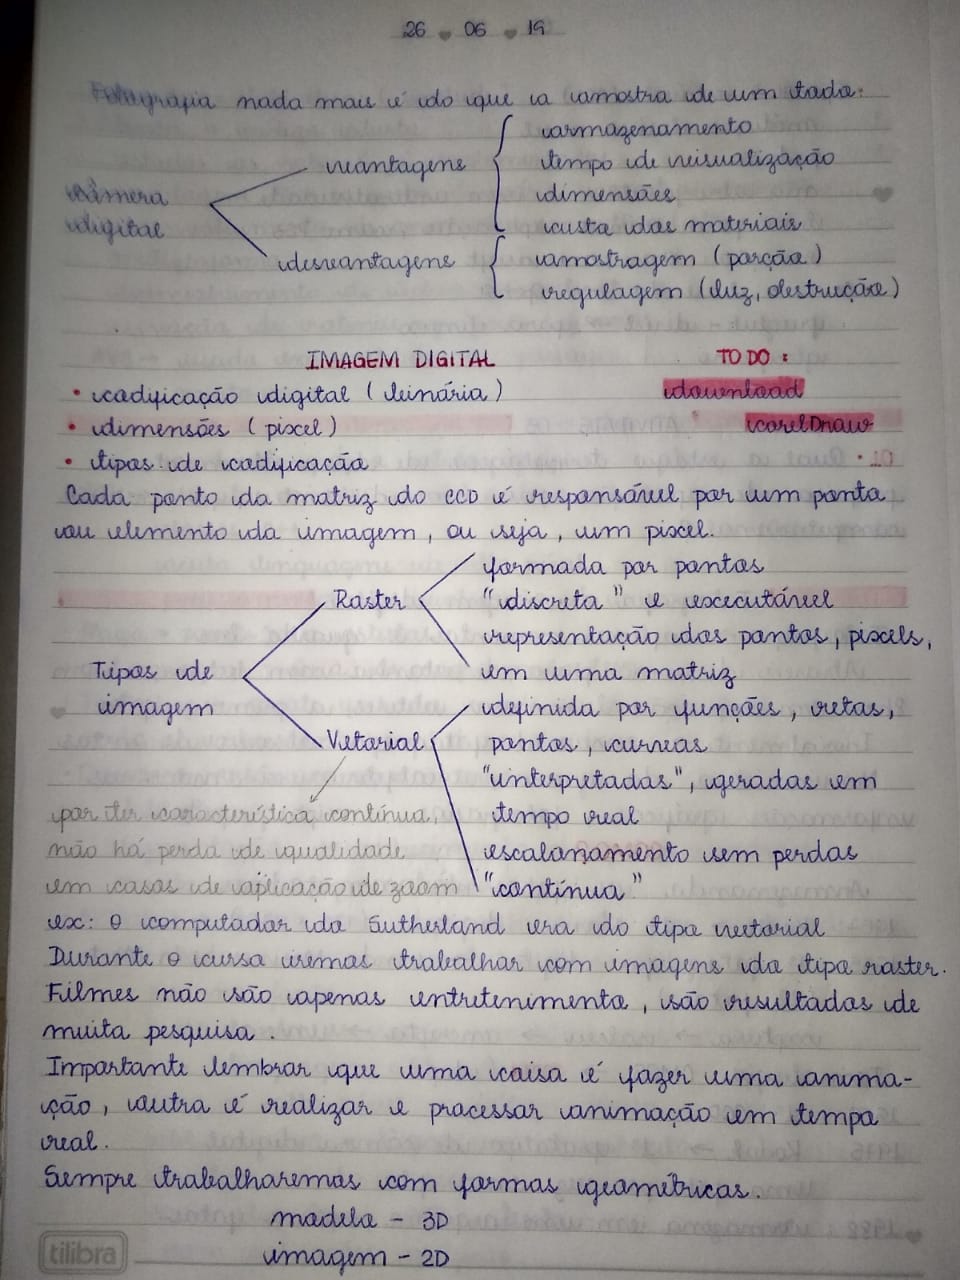 26 . 06 . 19
Fotografia nada mais é do que a amostra de um todo.
Câmera digital
vantagens
armazenamento
tempo de visualização
dimensões
custo dos materiais
desvantagens
amostragem (porção)
regulagem (luz, destruição)
IMAGEM DIGITAL
• codificação digital (binária)
• dimensões (pixel)
• tipos de codificação
TO DO :
download
CorelDraw
Cada ponto da matriz do CCD é responsável por um ponto
ou elemento da imagem, ou seja, um pixel.
Tipos de
imagem
Raster
formada por pontos
"discreta" e executável
representação dos pontos, pixels,
em uma matriz
Vetorial
definida por funções, retas,
pontos, curvas
"interpretadas", geradas em
tempo real
escalonamento sem perdas
"contínua"
por ter característica contínua,
não há perda de qualidade
em casos de aplicação de zoom
ex: o computador do Sutherland era do tipo vetorial
Durante o curso iremos trabalhar com imagens do tipo raster.
Filmes não são apenas entretenimento, são resultados de
muita pesquisa.
Importante lembrar que uma coisa é fazer uma anima-
ção, outra é realizar e processar animação em tempo
real.
Sempre trabalharemos com formas geométricas.
modelo - 3D
imagem - 2D
tilibra